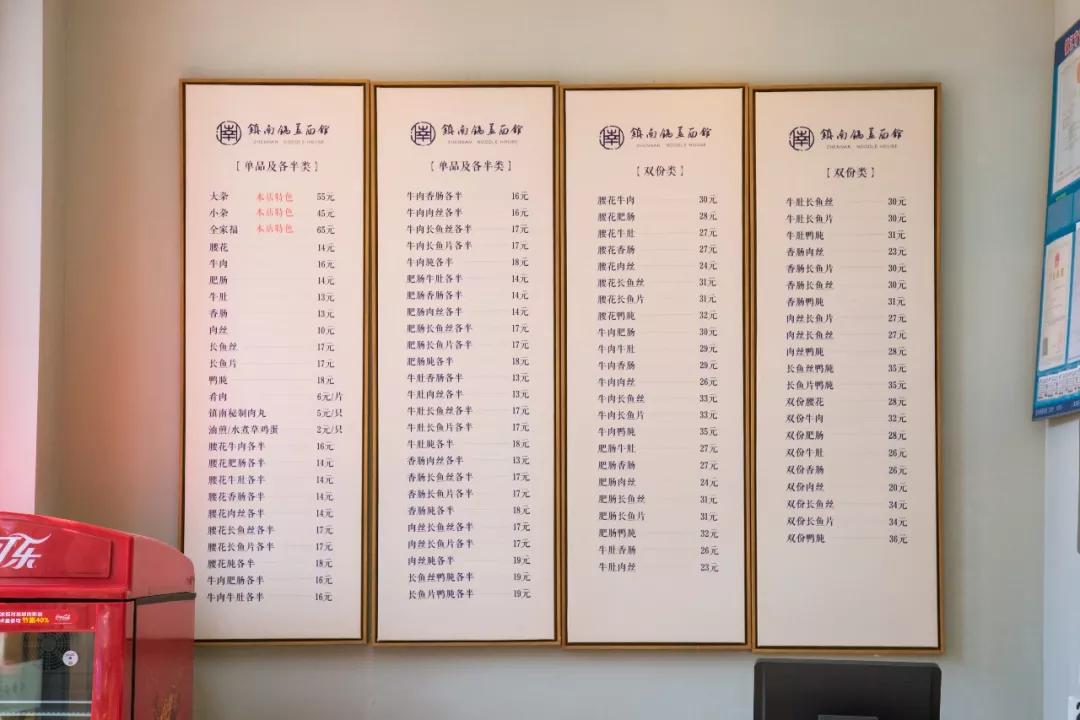 镇南锅盖面馆
ZHENNAN NOODLE HOUSE
【单品及各半类】
大杂 本店特色 55元
小杂 本店特色 45元
全家福 本店特色 65元
腰花 14元
牛肉 16元
肥肠 14元
牛肚 13元
香肠 13元
肉丝 10元
长鱼丝 17元
长鱼片 17元
鸭肫 18元
肴肉 6元/片
镇南秘制肉丸 5元/只
油煎/水煮草鸡蛋 2元/只
腰花牛肉各半 16元
腰花肥肠各半 14元
腰花牛肚各半 14元
腰花香肠各半 14元
腰花肉丝各半 14元
腰花长鱼丝各半 17元
腰花长鱼片各半 17元
腰花肫各半 18元
牛肉肥肠各半 16元
牛肉牛肚各半 16元
镇南锅盖面馆
ZHENNAN NOODLE HOUSE
【单品及各半类】
牛肉香肠各半 16元
牛肉肉丝各半 16元
牛肉长鱼丝各半 17元
牛肉长鱼片各半 17元
牛肉肫各半 18元
肥肠牛肚各半 14元
肥肠香肠各半 14元
肥肠肉丝各半 14元
肥肠长鱼丝各半 17元
肥肠长鱼片各半 17元
肥肠肫各半 18元
牛肚香肠各半 13元
牛肚肉丝各半 13元
牛肚长鱼丝各半 17元
牛肚长鱼片各半 17元
牛肚肫各半 18元
香肠肉丝各半 13元
香肠长鱼丝各半 17元
香肠长鱼片各半 17元
香肠肫各半 18元
肉丝长鱼丝各半 17元
肉丝长鱼片各半 17元
肉丝肫各半 19元
长鱼丝鸭肫各半 19元
长鱼片鸭肫各半 19元
镇南锅盖面馆
ZHENNAN NOODLE HOUSE
【双份类】
腰花牛肉 30元
腰花肥肠 28元
腰花牛肚 27元
腰花香肠 27元
腰花肉丝 24元
腰花长鱼丝 31元
腰花长鱼片 31元
腰花鸭肫 32元
牛肉肥肠 30元
牛肉牛肚 29元
牛肉香肠 29元
牛肉肉丝 26元
牛肉长鱼丝 33元
牛肉长鱼片 33元
牛肉鸭肫 35元
肥肠牛肚 27元
肥肠香肠 27元
肥肠肉丝 24元
肥肠长鱼丝 31元
肥肠长鱼片 31元
肥肠鸭肫 32元
牛肚香肠 26元
牛肚肉丝 23元
镇南锅盖面馆
ZHENNAN NOODLE HOUSE
【双份类】
牛肚长鱼丝 30元
牛肚长鱼片 30元
牛肚鸭肫 31元
香肠肉丝 23元
香肠长鱼片 30元
香肠长鱼丝 30元
香肠鸭肫 31元
肉丝长鱼片 27元
肉丝长鱼丝 27元
肉丝鸭肫 28元
长鱼丝鸭肫 35元
长鱼片鸭肫 35元
双份腰花 28元
双份牛肉 32元
双份肥肠 28元
双份牛肚 26元
双份香肠 26元
双份肉丝 20元
双份长鱼丝 34元
双份长鱼片 34元
双份鸭肫 36元
可乐
节能40%